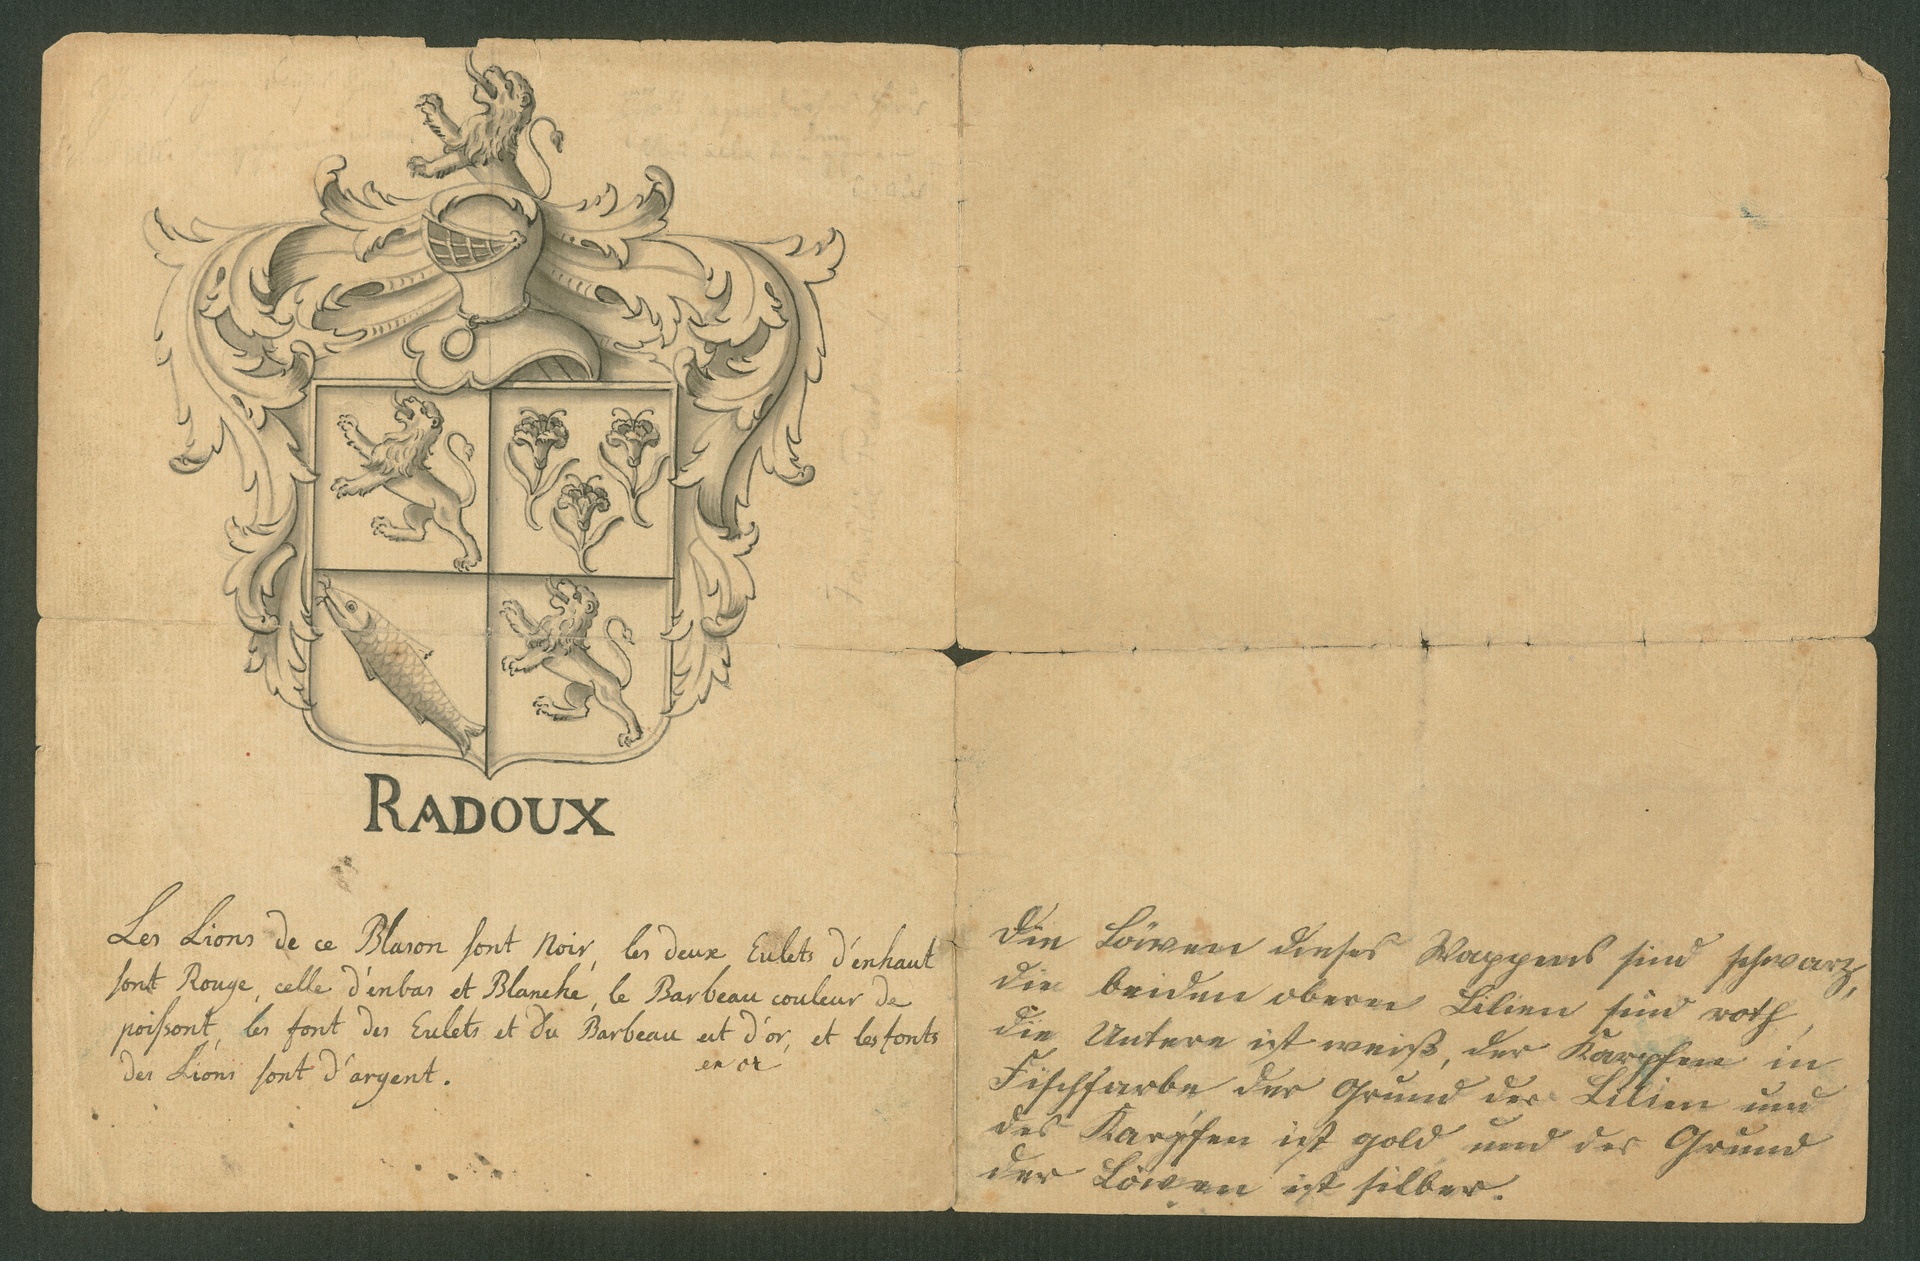 RADOUX
Les Lions de ce Blason sont Noir, les deux Eulets d'enhaut
sont Rouge, celle d'enbas et Blanche, le Barbeau couleur de
poissont, les font des Eulets et du Barbeau est d'or, et les fonts
en or
des Lions sont d'argent.
Die Löwen dieses Wappens sind schwarz,
die beiden oberen Lilien sind roth,
die Untere ist weiß, der Karpfen in
Fischfarbe der Grund der Lilien und
des Karpfen ist gold und der Grund
der Löwen ist silber.